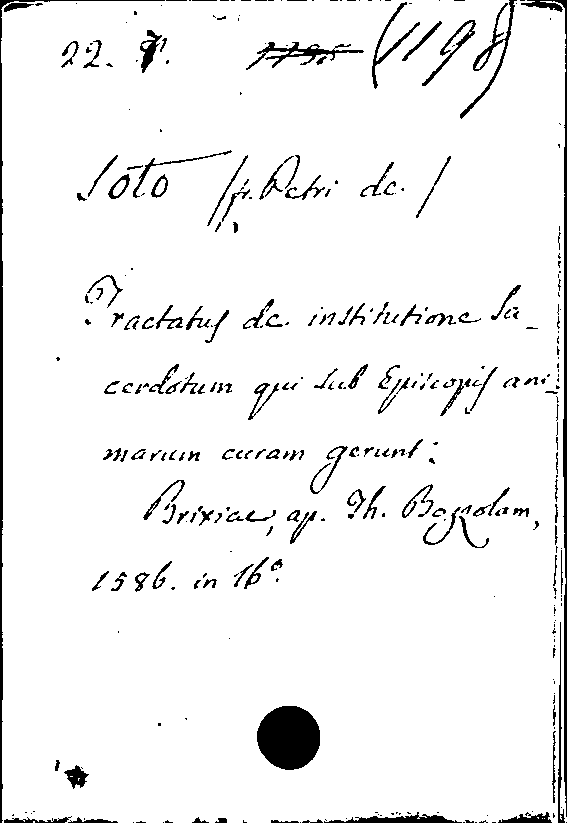 22. (1198)
Soto /fr. Petri de./
Tractatus de institutione Sa-
cerdotum qui sub Episcopis ani-
marum curam gerunt:
Brixiae, ap. Th. Bozolam,
1586. in 16°.